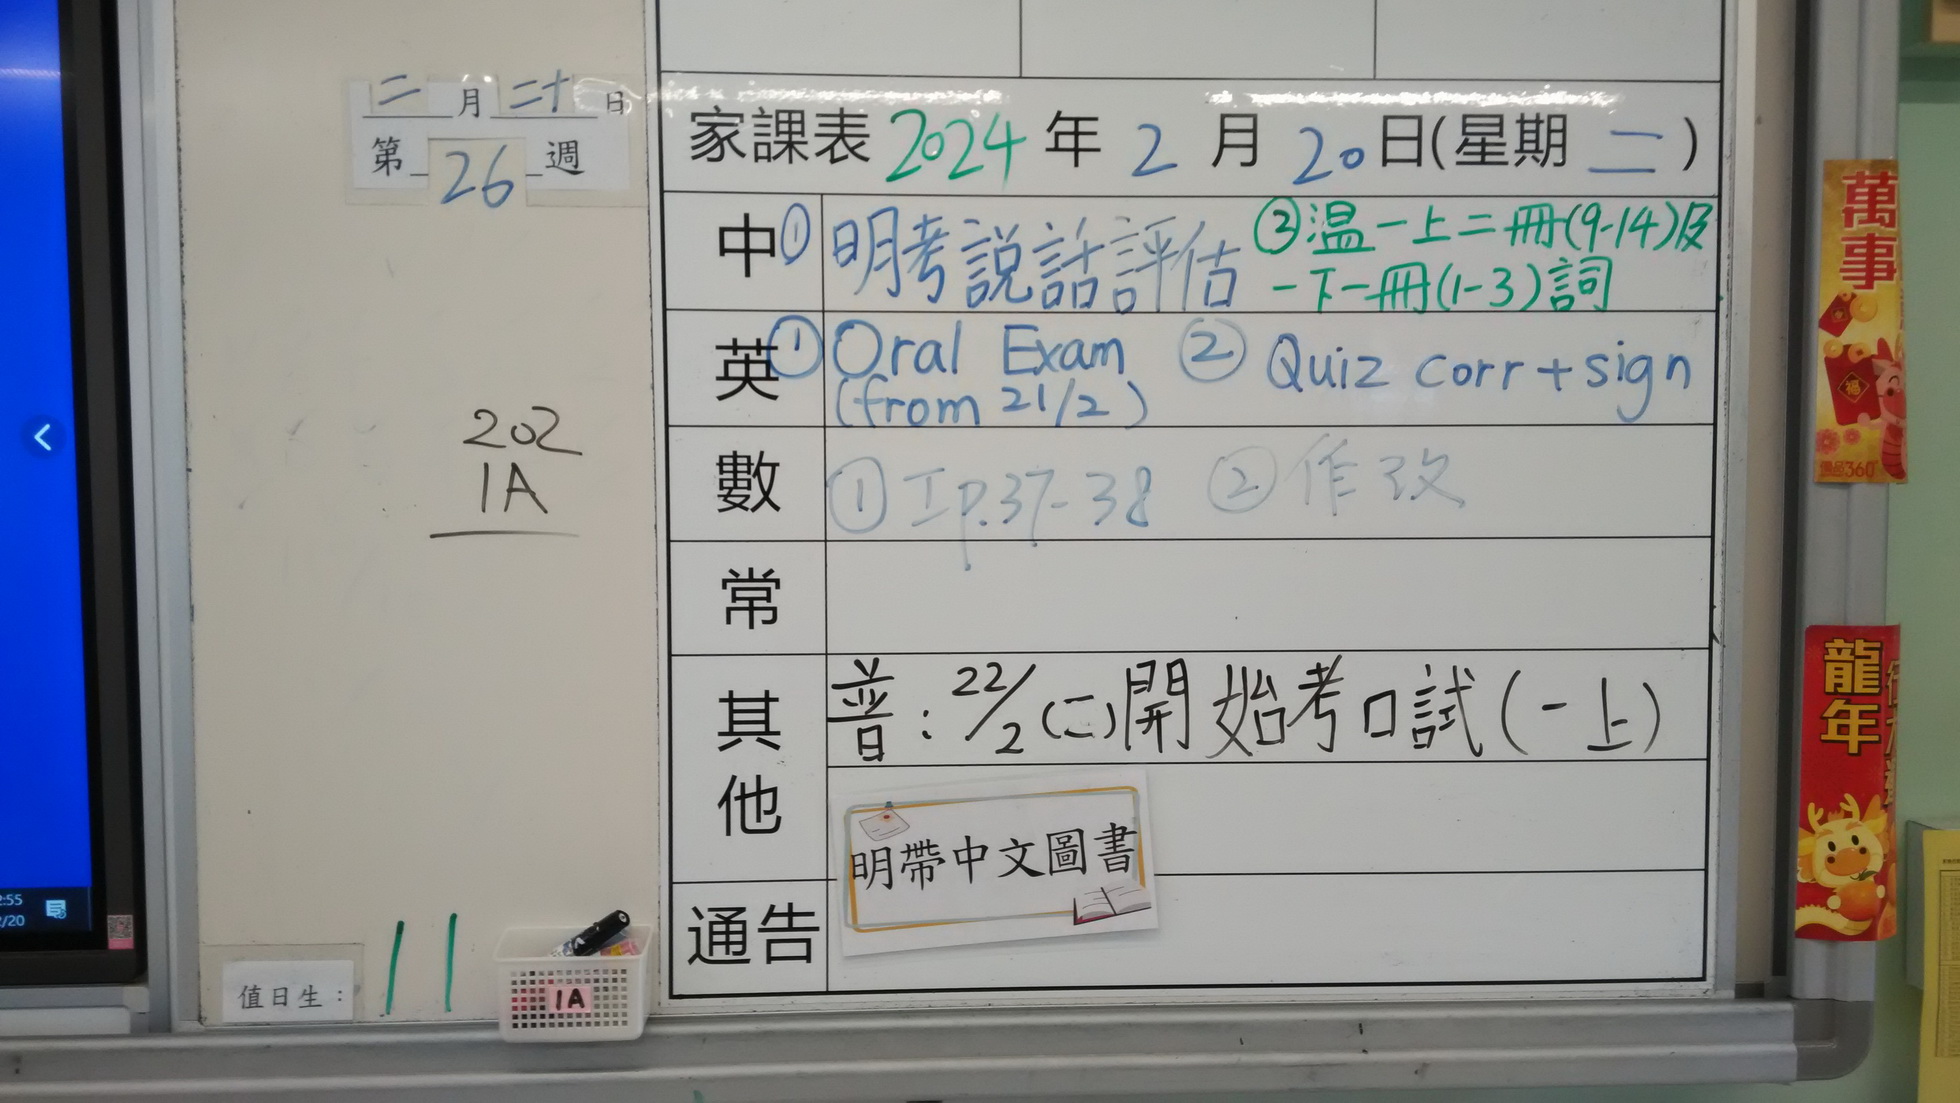 二月二十日
第26週
202
1A
值日生：11
1A
:55
/20
家課表 2024年2月20日(星期二)
中 ① 明考說話評估 ③溫一上二冊(9-14)及
一下一冊(1-3)詞
英 ① Oral Exam ② Quiz corr+sign
(from 21/2)
數 ① 工p.37-38 ② 作改
常
其他 普：22/2(二)開始考口試(一上)
明帶中文圖書
通告
萬事
福
龍年